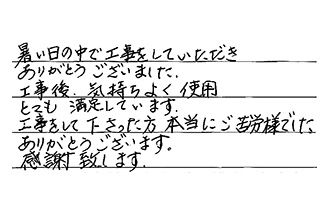 暑い日の中で工事をしていただき
ありがとうございました.
工事後. 気持ちよく使用
とても 満足しています.
工事をして下さった方 本当にご苦労様でした
ありがとうございます。
感謝致します.